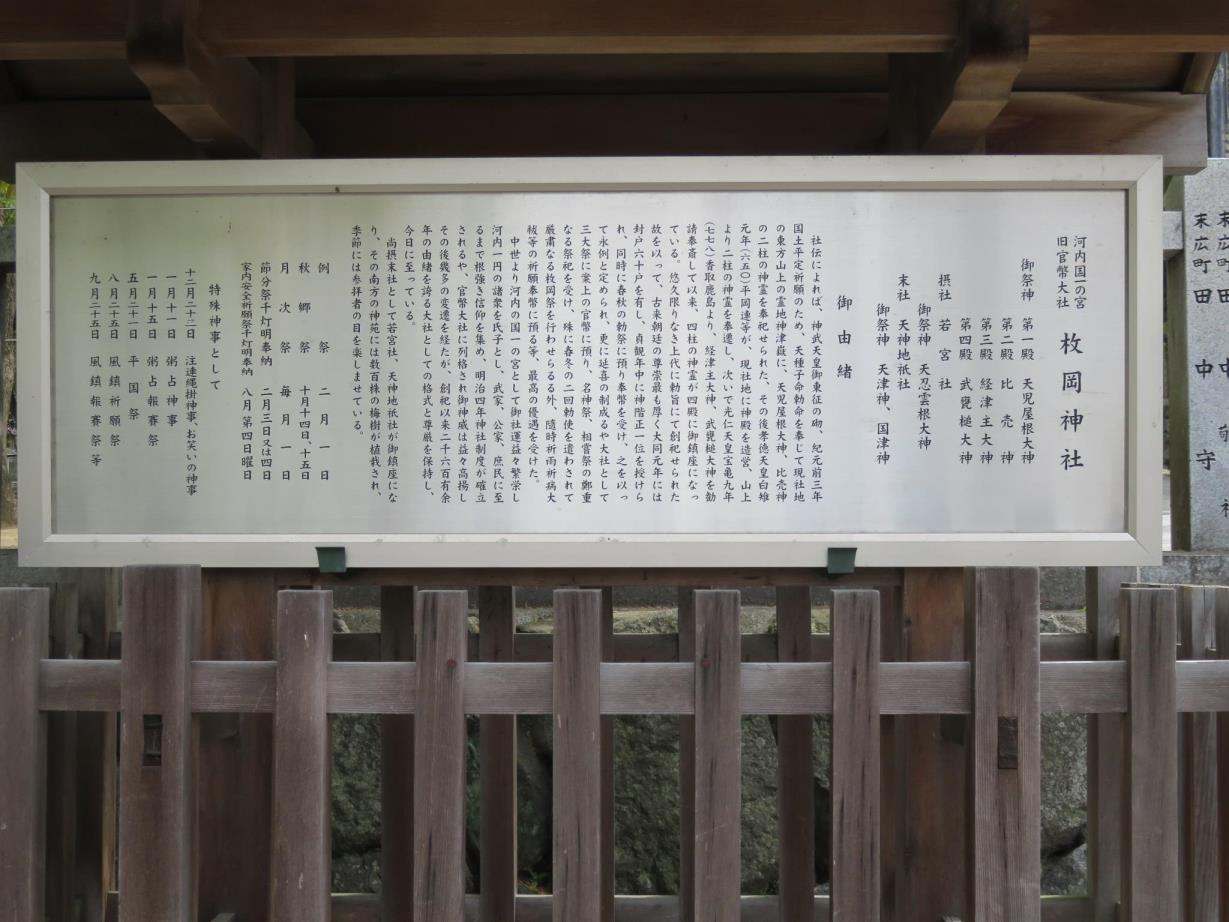 河内国一の宮
旧官幣大社
枚岡神社
御祭神 第一殿 天児屋根大神
第二殿 比売神
第三殿 経津主大神
第四殿 武甕槌大神
摂社 若宮社
御祭神 天忍雲根大神
末社 天神地祇社
御祭神 天津神、国津神
御由緒
社伝によれば、神武天皇御東征の砌、紀元前三年
国土平定祈願のため、天種子命勅命を奉じて現社地
の東方山上の霊地神津嶽に、天児屋根大神、比売神
の二柱の神霊を奉祀せられた、その後孝徳天皇白雉
元年(六五〇)平岡連等が、現社地に神殿を造営、山上
より二柱の神霊を奉遷し、次いで光仁天皇宝亀九年
(七七八)香取鹿島より、経津主大神、武甕槌大神を勧
請奉斎して以来、四柱の神霊が四殿に御鎮座になっ
ている。悠久限りなき上代に勅旨にて創祀せられた
故を以って、古来朝廷の尊崇最も厚く大同元年には
封戸六十戸を有し、貞観年中に神階正一位を授けら
れ、同時に春秋の勅祭に預り奉幣を受け、之を以っ
て永例と定められ、更に延喜の制成るや大社として
三大祭に案上の官幣に預り、名神祭、相嘗祭の鄭重
なる祭祀を受け、殊に春冬の二回勅使を遣わされて
厳粛なる枚岡祭を行わせらるる外、随時祈雨祈病大
祓等の祈願奉幣に預る等、最高の優遇を受けた。
中世より河内の国一の宮として御社運益々繁栄し
河内一円の諸衆を氏子とし、武家、公家、庶民に至
るまで根強き信仰を集め、明治四年神社制度が確立
されるや、官幣大社に列格され御神威は益々高揚し
その後幾多の変遷を経たが、創祀以来二千六百有余
年の由緒を誇る大社としての格式と尊厳を保持し、
今日に至っている。
尚摂末社として若宮社、天神地祇社が御鎮座にな
り、その南方の神苑には数百株の梅樹が植栽され、
季節には参拝者の目を楽しませている。
例祭 二月一日
秋郷祭 十月十四日、十五日
月次祭 毎月一日
節分祭千灯明奉納 二月三日又は四日
家内安全祈願祭千灯明奉納 八月第四日曜日
特殊神事として
十二月二十三日 注連縄掛神事、お笑いの神事
一月十一日 粥占神事
一月十五日 粥占報賽祭
五月二十一日 平国祭
八月二十五日 風鎮祈願祭
九月二十五日 風鎮報賽祭 等
末広町
末広町田中守